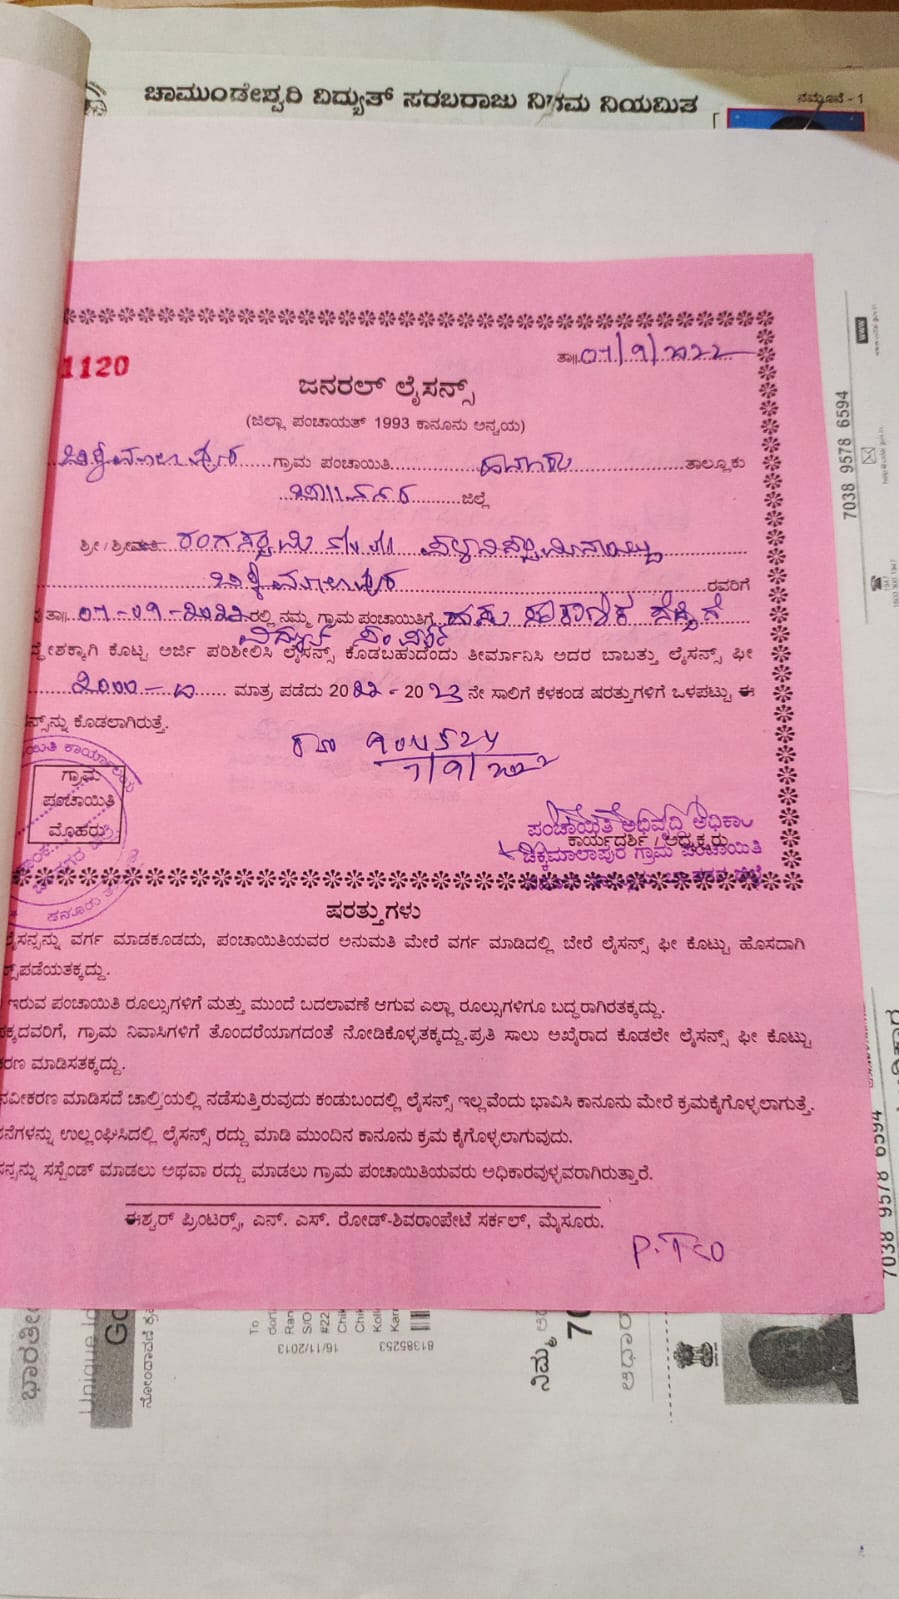 ಚಾಮುಂಡೇಶ್ವರಿ ವಿದ್ಯುತ್ ಸರಬರಾಜು ನಿಗಮ ನಿಯಮಿತ
ನಮೂನೆ - 1
1120
ತಾ॥ 07/9/2022
ಜನರಲ್ ಲೈಸನ್ಸ್
(ಜಿಲ್ಲಾ ಪಂಚಾಯತ್ 1993 ಕಾನೂನು ಅನ್ವಯ)
ಚಿಕ್ಕಮಾಲಾಪುರ ಗ್ರಾಮ ಪಂಚಾಯಿತಿ ಹನೂರು ತಾಲ್ಲೂಕು
ಚಾ॥ನಗರ ಜಿಲ್ಲೆ
ಶ್ರೀ / ಶ್ರೀಮತಿ ರಂಗಸ್ವಾಮಿ
ಚಿಕ್ಕಮಾಲಾಪುರ ರವರಿಗೆ
ತಾ॥ 07-09-2022 ರಲ್ಲಿ ನಮ್ಮ ಗ್ರಾಮ ಪಂಚಾಯಿತಿಗೆ
ವಿದ್ಯುತ್
ದ್ದೇಶಕ್ಕಾಗಿ ಕೊಟ್ಟ ಅರ್ಜಿ ಪರಿಶೀಲಿಸಿ ಲೈಸನ್ಸ್ ಕೊಡಬಹುದೆಂದು ತೀರ್ಮಾನಿಸಿ ಅದರ ಬಾಬತ್ತು ಲೈಸನ್ಸ್ ಫೀ
2000 ಮಾತ್ರ ಪಡೆದು 2022 - 2023 ನೇ ಸಾಲಿಗೆ ಕೆಳಕಂಡ ಷರತ್ತುಗಳಿಗೆ ಒಳಪಟ್ಟು ಈ
ನ್ಸ್‌ನ್ನು ಕೊಡಲಾಗಿರುತ್ತೆ.
7/9/2022
ಗ್ರಾಮ
ಪಂಚಾಯಿತಿ
ಮೊಹರು
ಪಂಚಾಯಿತಿ ಅಭಿವೃದ್ಧಿ ಅಧಿಕಾರಿ
ಕಾರ್ಯದರ್ಶಿ / ಅಧ್ಯಕ್ಷರು
ಚಿಕ್ಕಮಾಲಾಪುರ ಗ್ರಾಮ ಪಂಚಾಯಿತಿ
ಷರತ್ತುಗಳು
ಲೈಸನ್ಸನ್ನು ವರ್ಗ ಮಾಡಕೂಡದು, ಪಂಚಾಯಿತಿಯವರ ಅನುಮತಿ ಮೇರೆ ವರ್ಗ ಮಾಡಿದಲ್ಲಿ ಬೇರೆ ಲೈಸನ್ಸ್ ಫೀ ಕೊಟ್ಟು ಹೊಸದಾಗಿ
ಪಡೆಯತಕ್ಕದ್ದು.
ಇರುವ ಪಂಚಾಯಿತಿ ರೂಲ್ಸುಗಳಿಗೆ ಮತ್ತು ಮುಂದೆ ಬದಲಾವಣೆ ಆಗುವ ಎಲ್ಲಾ ರೂಲ್ಸುಗಳಿಗೂ ಬದ್ಧರಾಗಿರತಕ್ಕದ್ದು.
ಕ್ಕದವರಿಗೆ, ಗ್ರಾಮ ನಿವಾಸಿಗಳಿಗೆ ತೊಂದರೆಯಾಗದಂತೆ ನೋಡಿಕೊಳ್ಳತಕ್ಕದ್ದು.ಪ್ರತಿ ಸಾಲು ಅಖೈರಾದ ಕೂಡಲೇ ಲೈಸನ್ಸ್ ಫೀ ಕೊಟ್ಟು
ಕರಣ ಮಾಡಿಸತಕ್ಕದ್ದು.
ನವೀಕರಣ ಮಾಡಿಸದೆ ಚಾಲ್ತಿಯಲ್ಲಿ ನಡೆಸುತ್ತಿರುವುದು ಕಂಡುಬಂದಲ್ಲಿ ಲೈಸನ್ಸ್ ಇಲ್ಲವೆಂದು ಭಾವಿಸಿ ಕಾನೂನು ಮೇರೆ ಕ್ರಮಕೈಗೊಳ್ಳಲಾಗುತ್ತೆ.
ನೆಗಳನ್ನು ಉಲ್ಲಂಘಿಸಿದಲ್ಲಿ ಲೈಸನ್ಸ್ ರದ್ದು ಮಾಡಿ ಮುಂದಿನ ಕಾನೂನು ಕ್ರಮ ಕೈಗೊಳ್ಳಲಾಗುವುದು.
ನ್ಸನ್ನು ಸಸ್ಪೆಂಡ್ ಮಾಡಲು ಅಥವಾ ರದ್ದು ಮಾಡಲು ಗ್ರಾಮ ಪಂಚಾಯಿತಿಯವರು ಅಧಿಕಾರವುಳ್ಳವರಾಗಿರುತ್ತಾರೆ.
ಈಶ್ವರ್ ಪ್ರಿಂಟರ್ಸ್, ಎನ್. ಎಸ್. ರೋಡ್-ಶಿವರಾಂಪೇಟೆ ಸರ್ಕಲ್, ಮೈಸೂರು.
P.T.O
7038 9578 6594
7038 9578 6594
16/11/2013
81385253
ನಿಮ್ಮ
ಆಧಾರ್